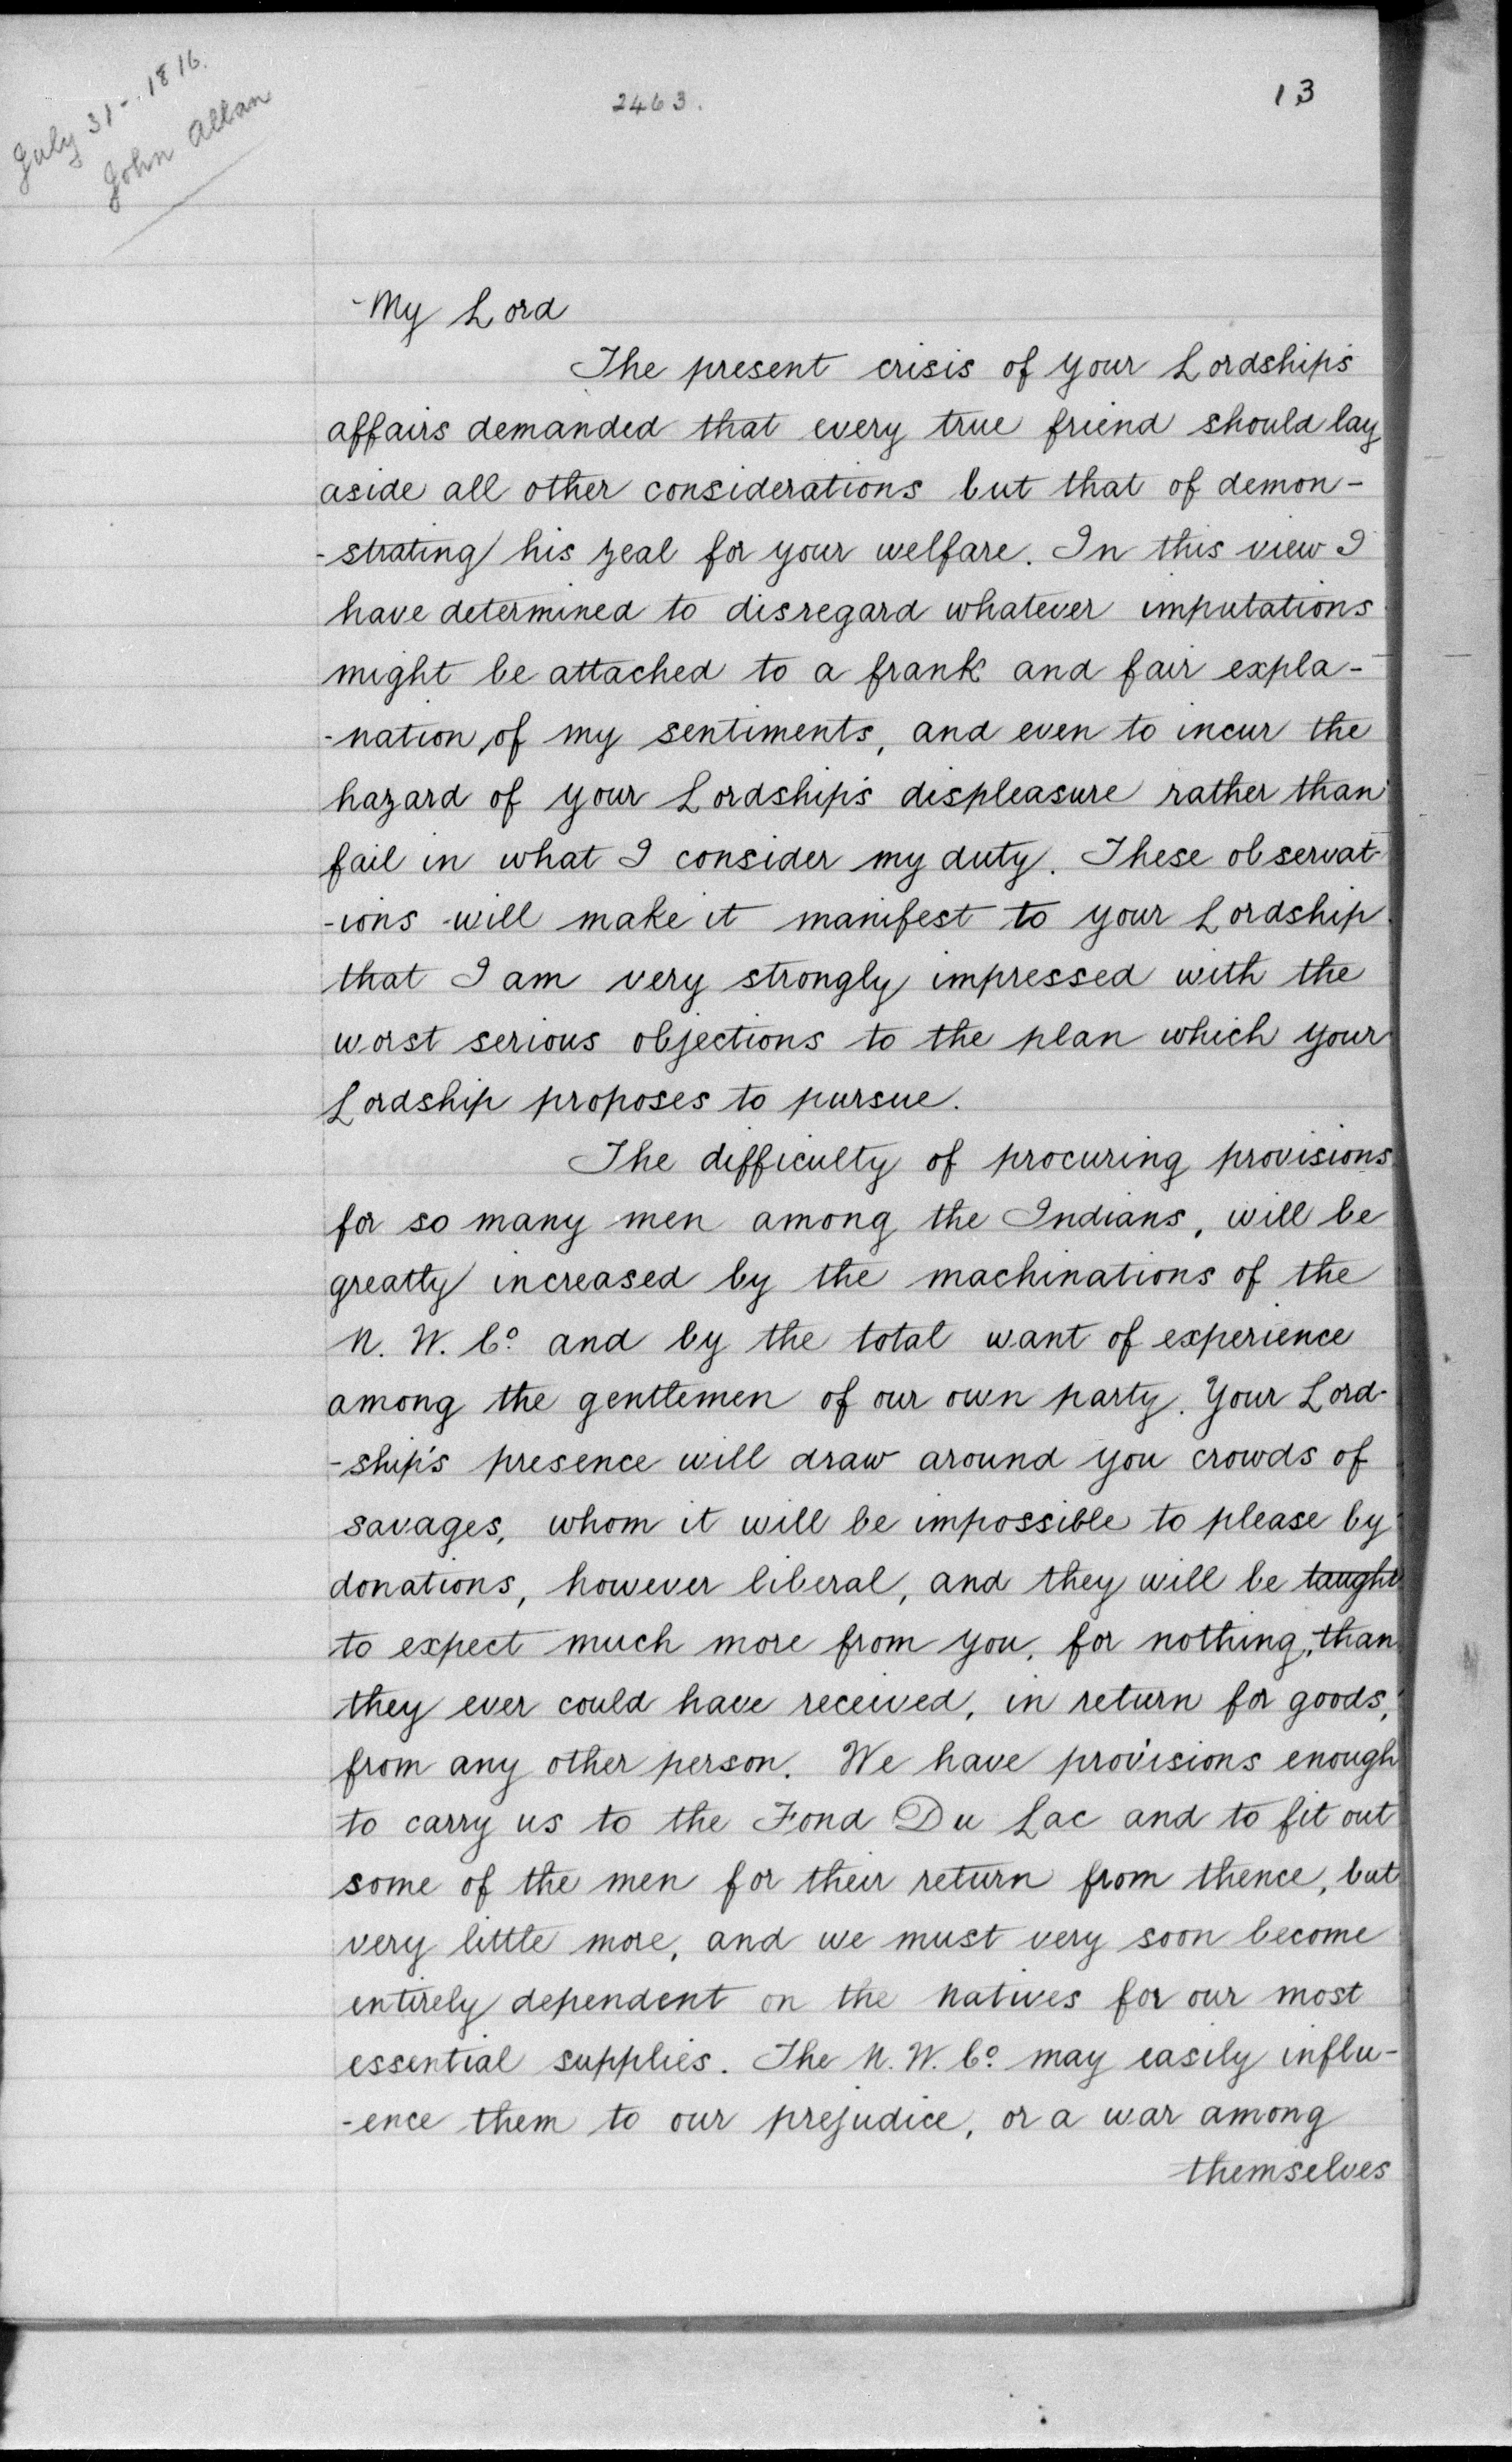 July 31-. 1816.
John Allan
2463.
13
My Lord
The present crisis of your Lordship's
affairs demanded that every true friend should lay
aside all other considerations but that of demon-
-strating his zeal for your welfare. In this view I
have determined to disregard whatever imputations
might be attached to a frank and fair expla-
-nation of my sentiments, and even to incur the
hazard of your Lordship's displeasure rather than
fail in what I consider my duty. These observat-
-ions will make it manifest to your Lordship
that I am very strongly impressed with the
worst serious objections to the plan which your
Lordship proposes to pursue.
The difficulty of procuring provisions
for so many men among the Indians, will be
greatly increased by the machinations of the
N. W. Cº and by the total want of experience
among the gentlemen of our own party. Your Lord-
-ship's presence will draw around you crowds of
savages, whom it will be impossible to please by
donations, however liberal, and they will be taught
to expect much more from you, for nothing, than
they ever could have received, in return for goods,
from any other person. We have provisions enough
to carry us to the Fond Du Lac and to fit out
some of the men for their return from thence, but
very little more, and we must very soon become
entirely dependent on the natives for our most
essential supplies. The N. W. Cº may easily influ-
-ence them to our prejudice, or a war among
themselves